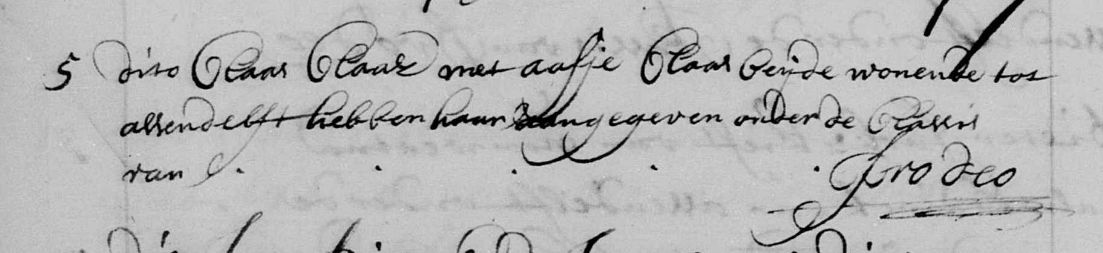 5 dito Claas Claasz met aafje Claas beijde wonende tot
assendelft hebben haar aangegeven onder de Classis
van . . . . . Pro Deo